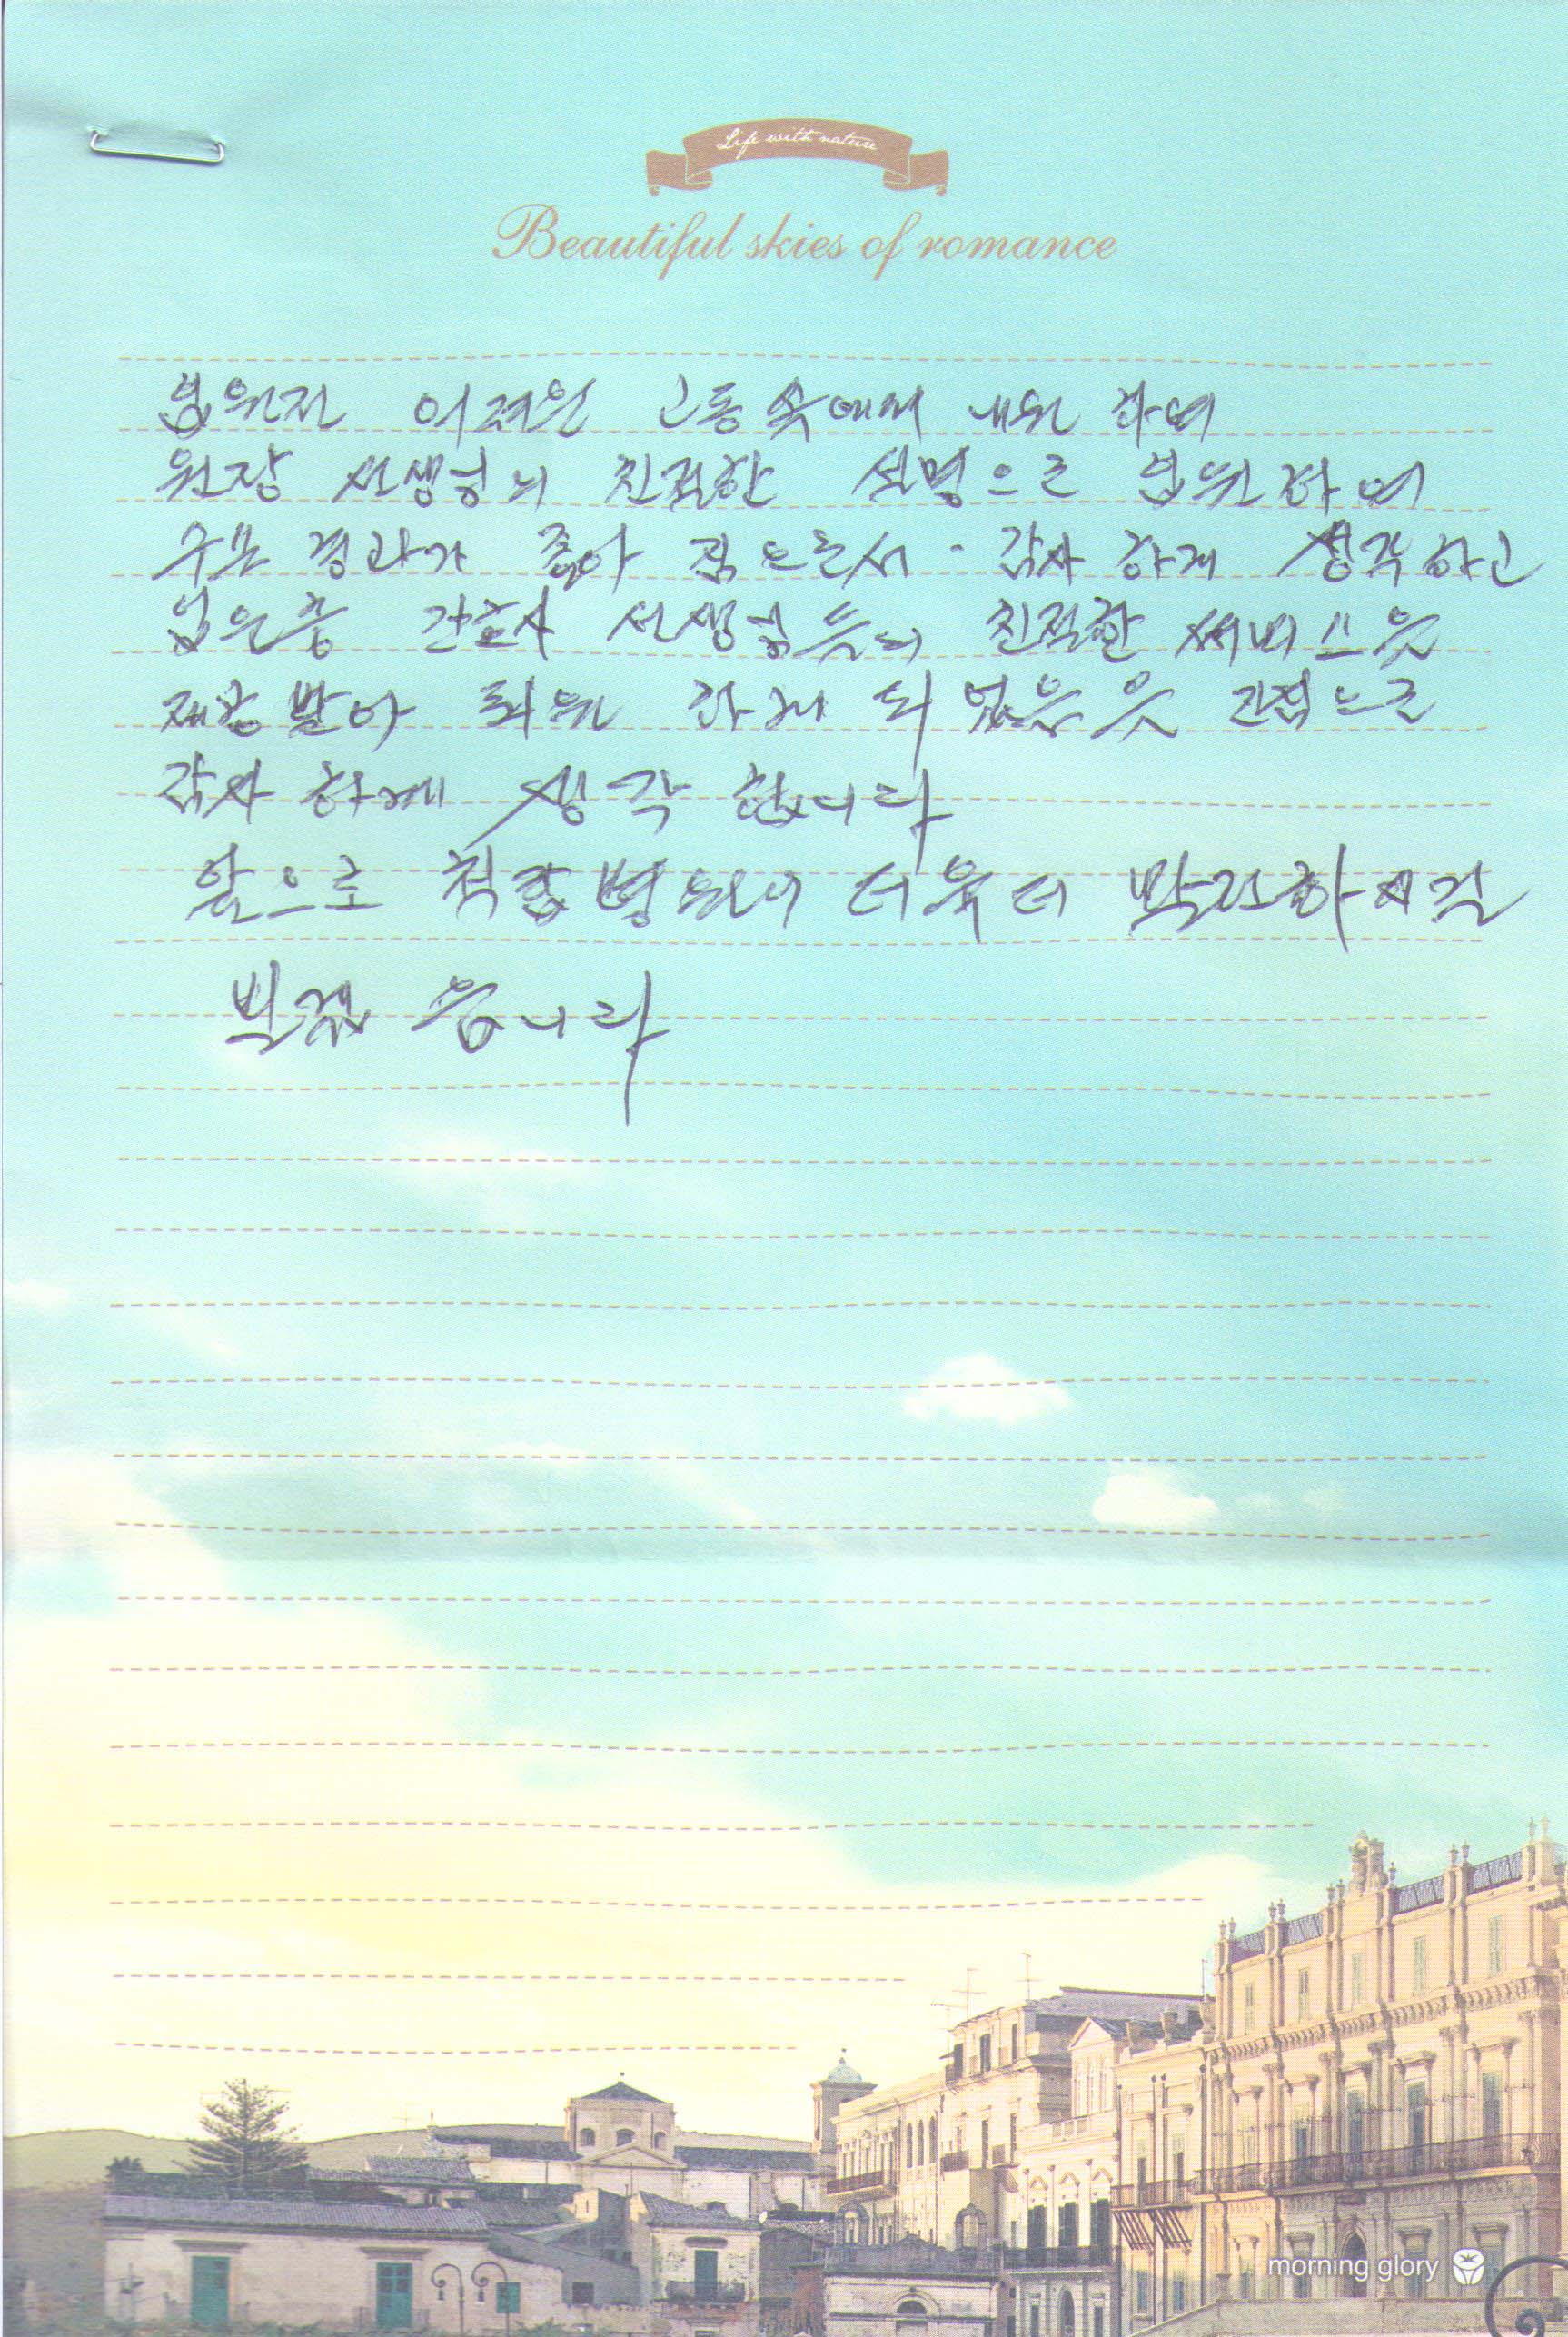 Life with nature
Beautiful skies of romance
입원전 어려운 고통 속에서 내원 하여
원장 선생님의 친절한 설명으로 입원하여
수술 경과가 좋아 짐으로서 감사 하게 생각하고
입원중 간호사 선생님들의 친절한 써비스을
제공 받아 퇴원 하게 되었음을 진심으로
감사 하게 생각 합니다
앞으로 척탑병원이 더욱더 발전하시길
빌겠 습니다
morning glory